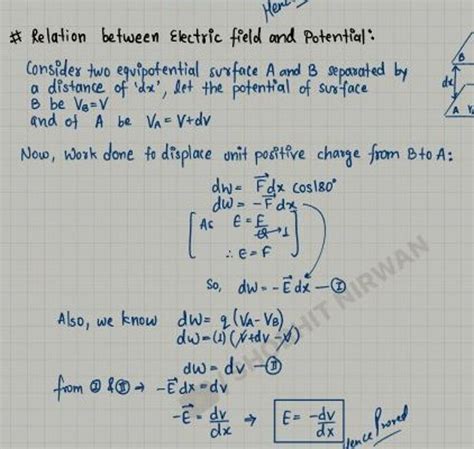 Hence
# Relation between Electric field and Potential:
Consider two equipotential surface A and B separated by
a distance of 'dx', let the potential of surface
B be V_B=V
and of A be V_A = V+dV
B
dx
A V
Now, Work done to displace unit positive charge from B to A:
dw = F⃗dx cos180°
dw = -F⃗dx
[As E = F/Q→1
∴ E = F]
So, dw = -E⃗dx —①
Also, we know dw = q(V_A-V_B)
dw = (1)(V+dv-V)
dw = dv —②
from ① & ② → -E⃗dx = dv
-E⃗ = dv/dx ⇒ E = -dv/dx
Hence Proved
SHOBHIT NIRWAN